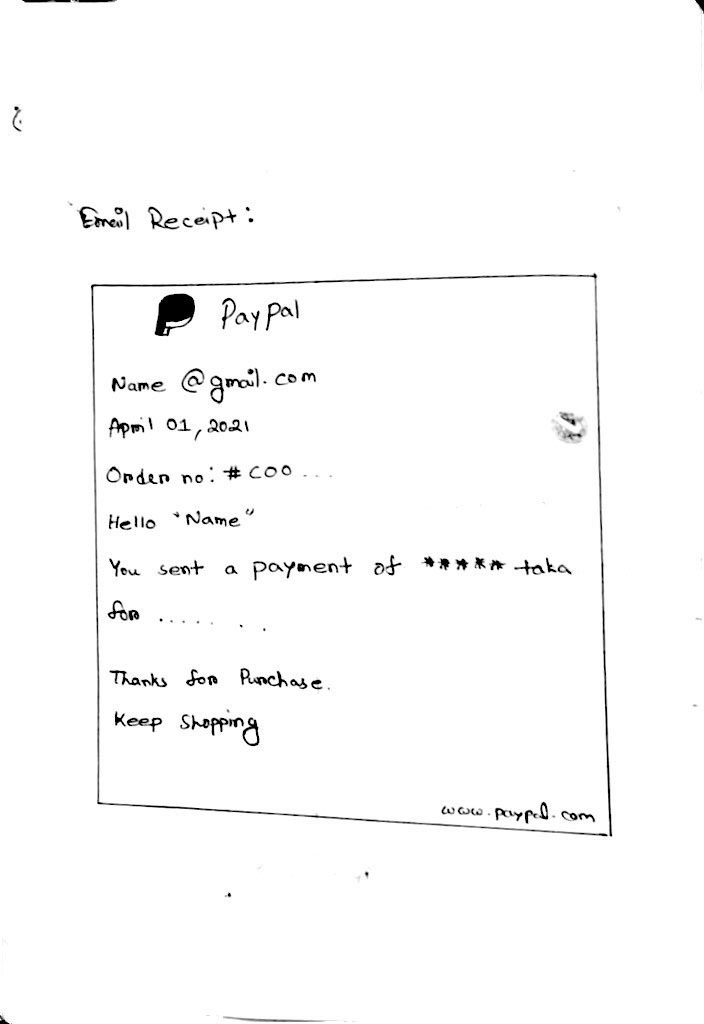 Email Receipt:
PayPal
Name @gmail.com
April 01, 2021
Order no: # C00 ...
Hello "Name"
You sent a payment of ***** taka
for ......  . .
Thanks for Purchase.
Keep Shopping
www.paypal.com